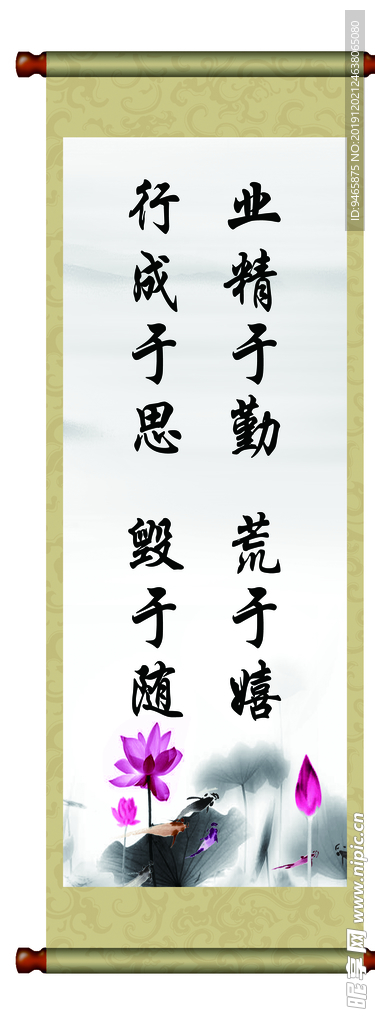 业精于勤 荒于嬉
行成于思 毁于随
ID:9465875 NO:20191202124638065080
昵享网 www.nipic.cn